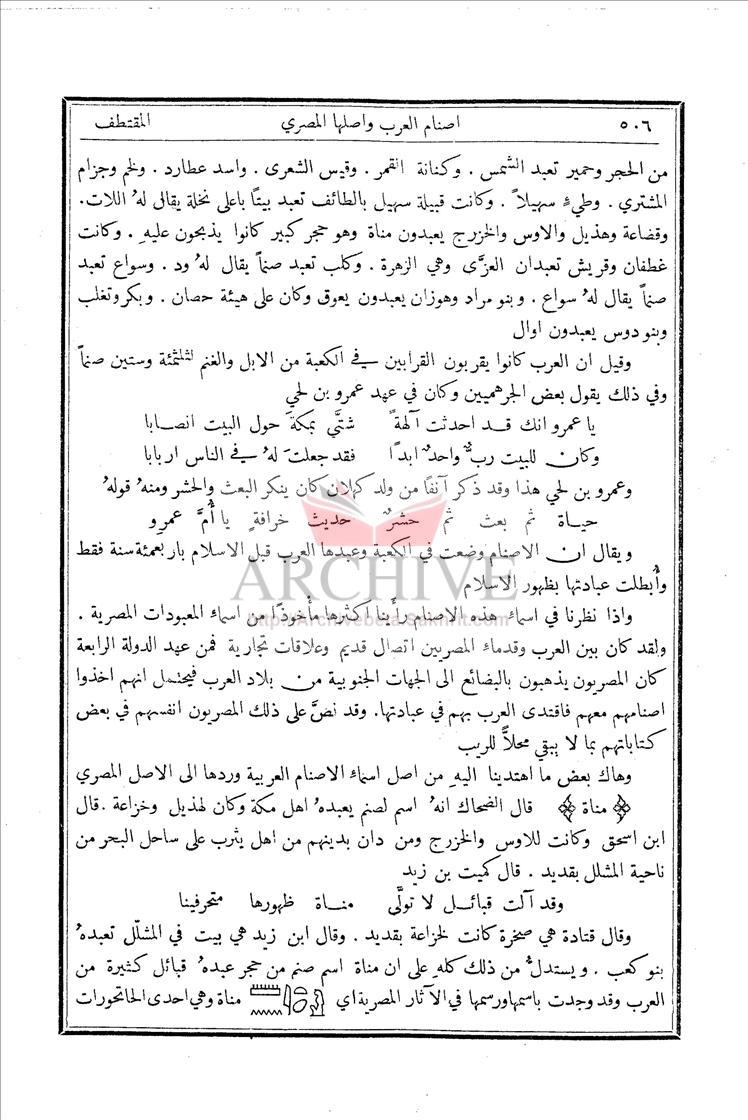 ٥٠٦ اصنام العرب واصلها المصري المقتطف
من الحجر وحمير تعبد الشمس . وكنانة القمر . وقيس الشعرى . واسد عطارد . ولخم وجزام
المشتري . وطيءٍ سهيلاً . وكانت قبيلة سهيل بالطائف تعبد بيتاً باعلى نخلة يقالى لهُ اللات.
وقضاعة وهذيل والاوس والخزرج يعبدون مناة وهو حجر كبير كانوا يذبحون عليهِ . وكانت
غطفان وقريش تعبدان العزَّى وهي الزهرة . وكلب تعبد صنماً يقال لهُ ود . وسواع تعبد
صنماً يقال لهُ سواع . وبنو مراد وهوزان يعبدون يعوق وكان على هيئة حصان . وبكر وتغلب
وبنو دوس يعبدون اوال
وقيل ان العرب كانوا يقربون القرابين في الكعبة من الابل والغنم لثلثمئة وستين صنماً
وفي ذلك يقول بعض الجرهميين وكان في عهد عمرو بن لحي
يا عمرو انك قد احدثت آلهةً شتَّى بمكةَ حول البيت انصابا
وكان للبيت ربٌّ واحدٌ ابدًا فقد جعلتَ لهُ في الناس اربابا
وعمرو بن لحي هذا وقد ذكر آنفًا من ولد كهلان كان ينكر البعث والحشر ومنهُ قولهُ
حياة ثم بعث ثم حشرٌ حديث خرافةٍ يا أُمَّ عمرو
ويقال ان الاصنام وضعت في الكعبة وعبدها العرب قبل الاسلام باربعمئة سنة فقط
وأُبطلت عبادتها بظهور الاسلام
ARCHIVE
واذا نظرنا في اسماء هذه الاصنام رأينا اكثرها مأخوذًا من اسماء المعبودات المصرية .
http://Archivebeta.Sakhrit.com
ولقد كان بين العرب وقدماء المصريين اتصال قديم وعلاقات تجارية فمن عهد الدولة الرابعة
كان المصريون يذهبون بالبضائع الى الجهات الجنوبية من بلاد العرب فيحتمل انهم اخذوا
اصنامهم معهم فاقتدى العرب بهم في عبادتها. وقد نصَّ على ذلك المصريون انفسهم في بعض
كتاباتهم بما لا يبقي محلاًّ للريب
وهاك بعض ما اهتدينا اليهِ من اصل اسماء الاصنام العربية وردها الى الاصل المصري
مناة قال الضحاك انهُ اسم لصنم يعبدهُ اهل مكة وكان لهذيل وخزاعة .قال
ابن اسحق وكانت للاوس والخزرج ومن دان بدينهم من اهل يثرب على ساحل البحر من
ناحية المشلل بقديد . قال كميت بن زيد
وقد آلت قبائل لا تولَّى مناة ظهورها متحرفينا
وقال قتادة هي صخرة كانت لخزاعة بقديد . وقال ابن زيد هي بيت في المشلّل تعبدهُ
بنو كعب . ويستدلُّ من ذلك كلهِ على ان مناة اسم صنم من حجر عبدهُ قبائل كثيرة من
العرب وقد وجدت باسمها ورسمها في الآثار المصرية اي مناة وهي احدى الحاتحورات